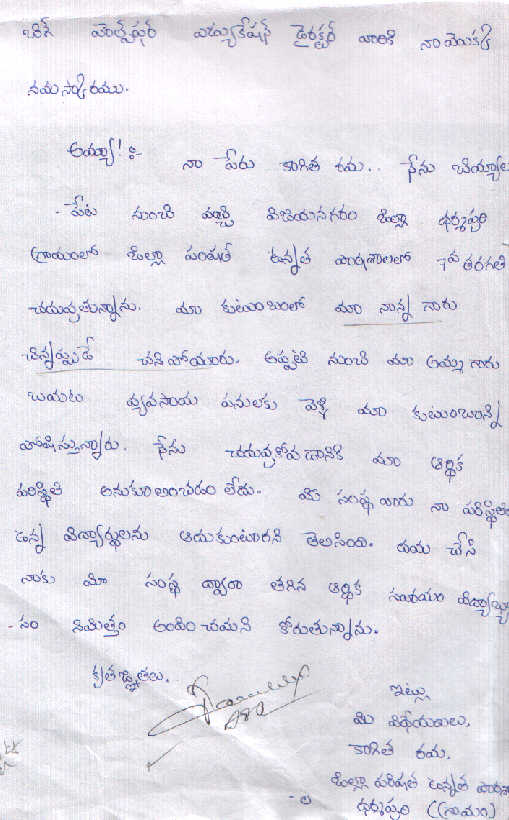 వెల్ఫేర్ ఎడ్యుకేషన్ డైరక్టర్ వారికి నా యొక్క
నమస్కారము.
అయ్యా! :-
నా పేరు రమ.. నేను
పేట నుంచి వచ్చి విజయనగరం జిల్లా ధర్మపురి
గ్రామంలో జిల్లా పరిషత్ ఉన్నత పాఠశాలలో 7వ తరగతి
చదువుతున్నాను. మా కుటుంబంలో మా నాన్న గారు
చిన్నప్పుడే చనిపోయారు. అప్పటి నుంచి మా అమ్మ గారు
బయట వ్యవసాయ పనులకు వెళ్ళి మా కుటుంబాన్ని
పోషిస్తున్నారు. నేను చదువుకోవడానికి మా ఆర్థిక
పరిస్థితి అనుకూలించడం లేదు. మీ సంస్థ వారు నా పరిస్థితిలో
ఉన్న విద్యార్థులను ఆదుకుంటారని తెలిసింది. దయ చేసి
నాకు మీ సంస్థ ద్వారా తగిన ఆర్థిక సహాయం
నిమిత్తం అందించమని కోరుతున్నాను.
కృతజ్ఞతలు.
ఇట్లు
మీ విధేయులు,
రమ,
జిల్లా పరిషత్ ఉన్నత
ధర్మపురి (గ్రామం)